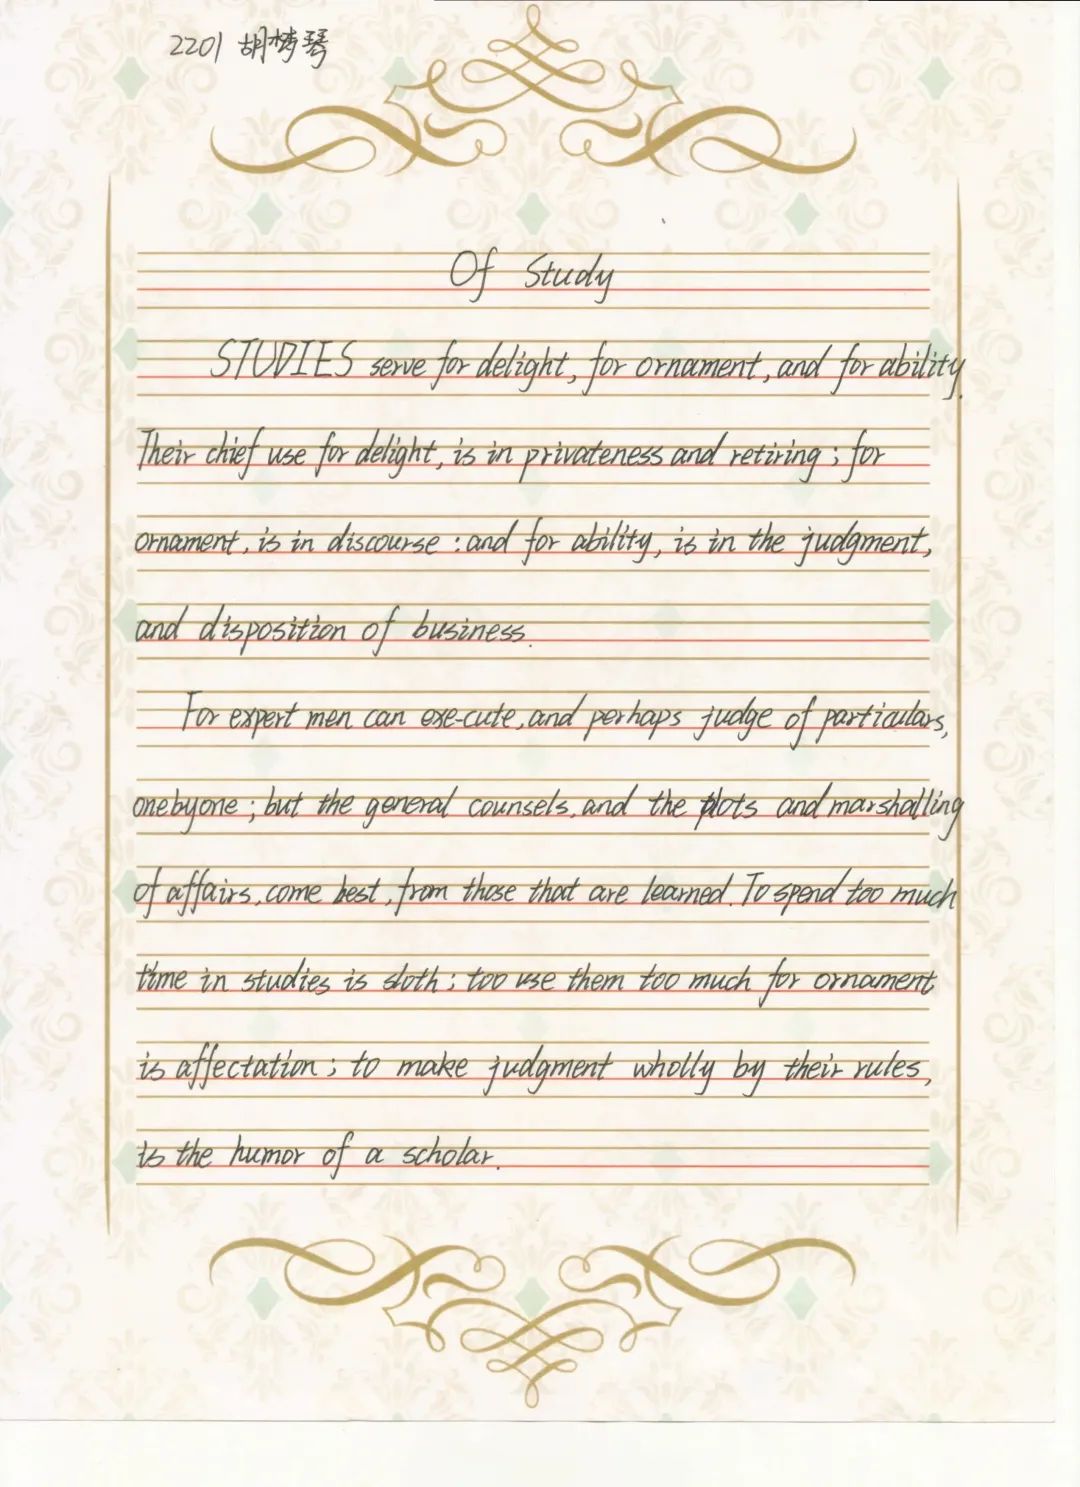 2201 胡梦琴
Of Study
STUDIES serve for delight, for ornament, and for ability.
Their chief use for delight, is in privateness and retiring; for
ornament, is in discourse: and for ability, is in the judgment,
and disposition of business.
For expert men can exe-cute, and perhaps judge of particulars,
onebyone; but the general counsels, and the plots and marshalling
of affairs, come best, from those that are learned. To spend too much
time in studies is sloth; too use them too much for ornament
is affectation; to make judgment wholly by their rules,
is the humor of a scholar.